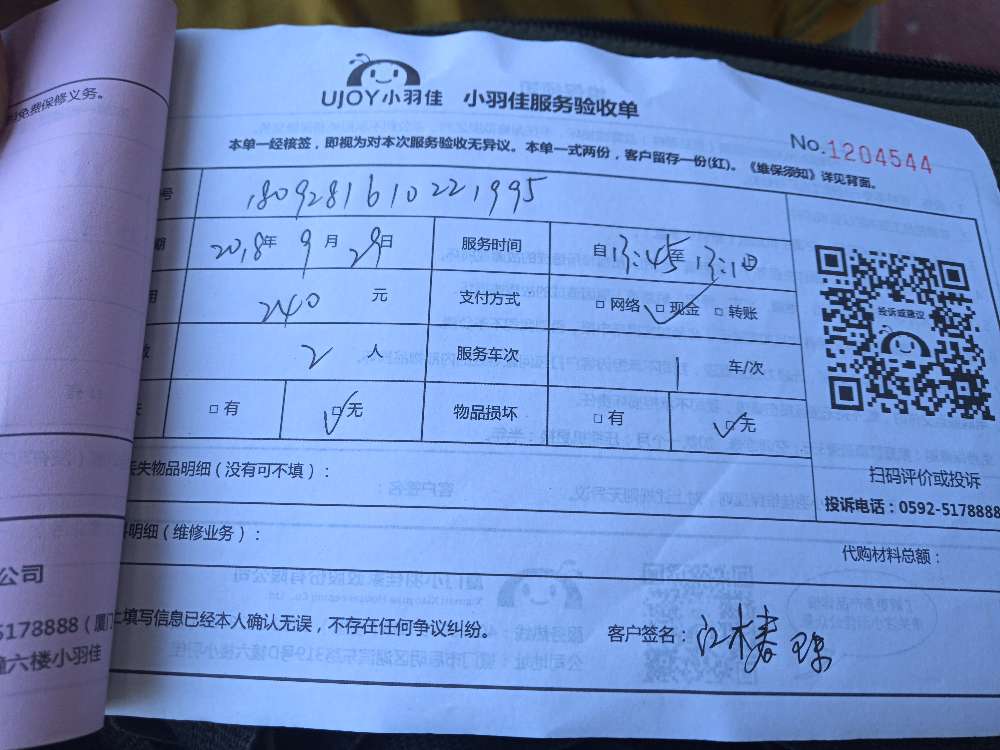 免费保修义务。
UJOY小羽佳 小羽佳服务验收单
No.1204544
本单一经核签，即视为对本次服务验收无异议。本单一式两份，客户留存一份(红)。《维保须知》详见背面。
号 1809281610221995
2018年 9月 29日 服务时间 自13:45至
240 元 支付方式 □网络 □现金 □转账
2 人 服务车次 1 车/次
□有 □无 物品损坏 □有 □无
投诉或建议
扫码评价或投诉
投诉电话：0592-5178888
失物品明细（没有可不填）：
明细（维修业务）： 代购材料总额：
填写信息已经本人确认无误，不存在任何争议纠纷。 客户签名：
公司
5178888（厦门
幢六楼小羽佳